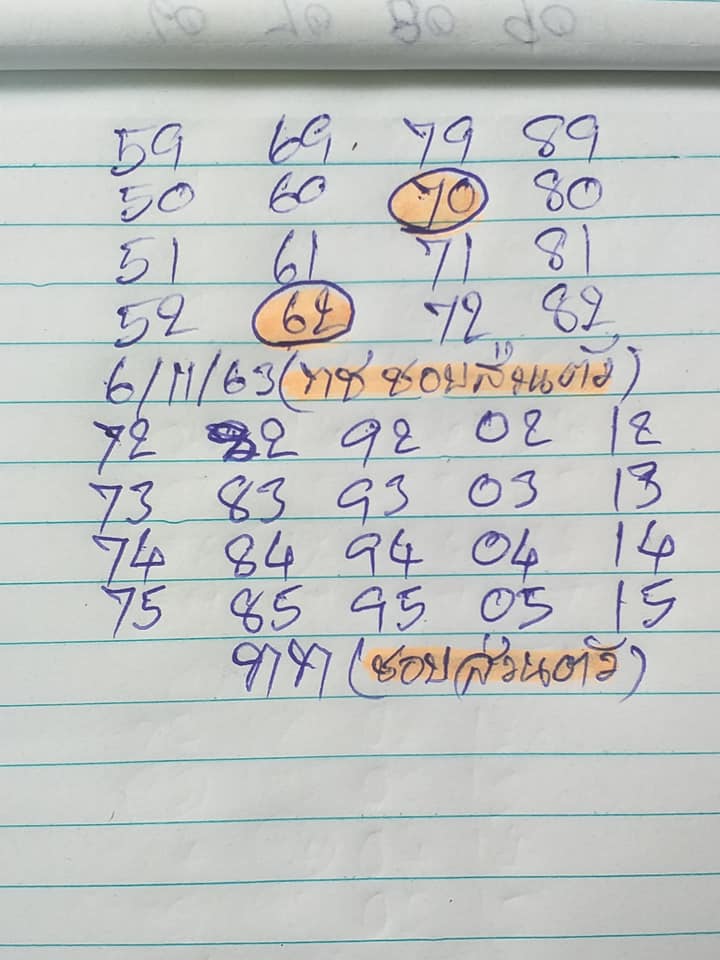 59 69 79 89
50 60 70 80
51 61 71 81
52 62 72 82
6/11/63 (ชอบส่วนตัว)
72 82 92 02 12
73 83 93 03 13
74 84 94 04 14
75 85 95 05 15
(ชอบส่วนตัว)